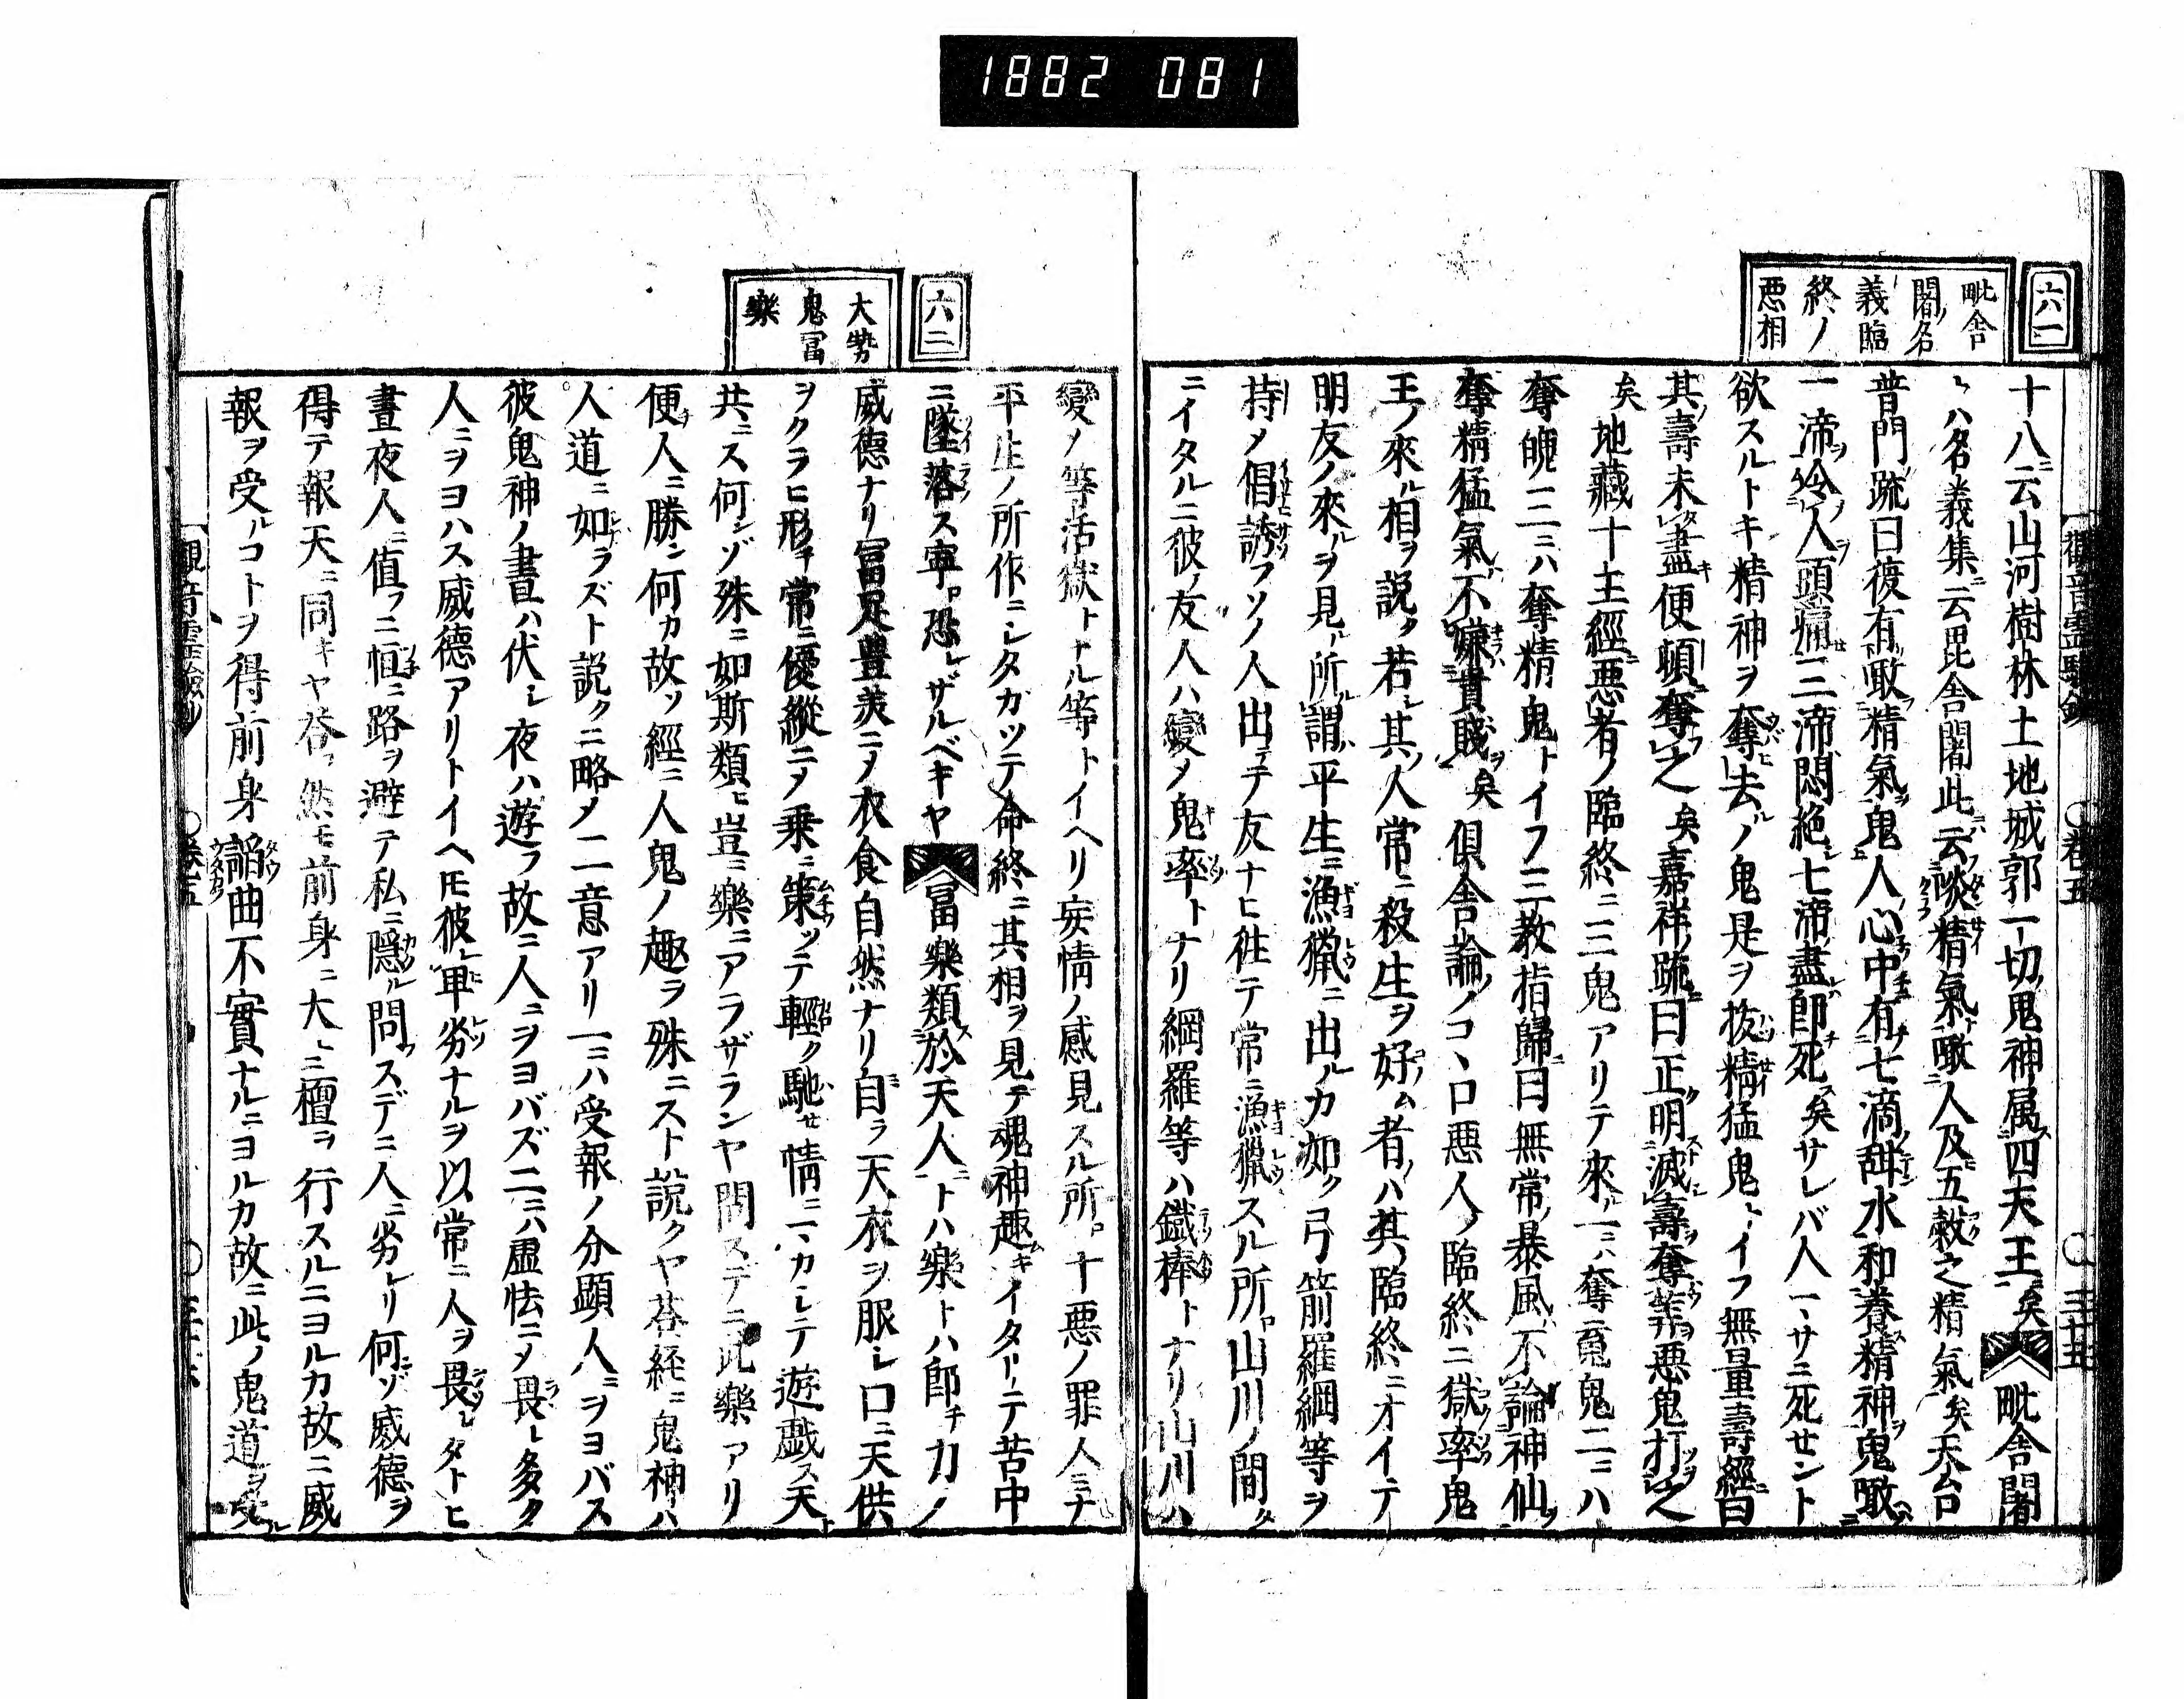 1882 081
六一
毗舍
闍ノ名
義臨
終ノ
悪相
十八ニ云山河樹林土地城郭一切ノ鬼神属ス四天王ニ矣 毗舍闍
ハ名義集ニ云毘舍闍此ニハ云噉精氣ト噉ニ人及ニ五穀之精氣ヲ矣天台
普門ノ疏ニ曰復有噉フ精氣ヲ鬼人ノ心中ニ有七滴ノ甜水和養ス精神ヲ鬼噉
一渧ヲ令人ヲ頭痛セ三渧ハ悶絶シ七渧盡レハ即チ死ス矣サレバ人一、サニ死セント
欲スルトキ精神ヲ奪ヒ去ルノ鬼是ヲ抜精猛鬼トイフ無量壽經ニ曰
其ノ壽未タ盡キ便頓ニ奪フ之ヲ矣嘉祥ノ疏ニ曰正ク明滅壽奪等ヲ悪鬼打ツ之ヲ
矣地藏十王經ニ悪者ノ臨終ニ三鬼アリテ來ル一ニハ奪䰟鬼二ニハ
奪魄三ニハ奪精鬼トイフ三教指歸ニ曰無常ノ暴風ハ不論セ神仙ヲ
奪精猛氣ハ不嫌ハ貴賤ヲ矣倶舍論ノコヽロ悪人ノ臨終ニ獄率鬼
王ノ來ル相ヲ説ク若シ其ノ人常ニ殺生ヲ好ム者ノハ其ノ臨終ニオイテ
明友ノ來ルヲ見ル所謂ル平生ニ漁獵ニ出ルカ如ク弓箭羅網等ヲ
持メ倡誘フソノ人出テテ友ナヒ往テ常ニ漁獵スル所ヤ山川ノ間タ
ニイタルニ彼ノ友人ハ變メ鬼率トナリ網羅等ハ鐵棒トナリ山川ハ
觀音靈驗鈔 ○卷五 ○三十五
六二
大勢
鬼冨
樂
變メ等活獄トナル等トイヘリ妄情ノ感見スル所ロ十悪ノ罪人ミナ
平生ノ所作ニシタガツテ命終ニ其相ヲ見テ魂神趣キイターテ苦中
ニ墜落ス寧ロ恐レザルベキヤ 冨樂類ス於天人ニトハ樂トハ即チ力ノ
威德ナリ冨足豊美ニメ衣食自然ナリ自ラ天衣ヲ服シ口ニ天供
ヲクラヒ形チ常ニ優縱ニメ乗ニ策ツテ輕ク馳セ情ニマカレテ遊戯ス天ト
共ニス何ンゾ殊ニ如斯類ヒ豈ニ樂ニアラザランヤ問スデニ此樂アリ
便チ人ニ勝ン何カ故ソ經ニ人鬼ノ趣ラ殊ニスト説クヤ荅經ニ鬼神ハ
人道ニ如ラズト説クニ略メ二意アリ一ニハ受報ノ分顯人ニヲヨバス
彼鬼神ノ晝ハ伏シ夜ハ遊フ故ニ人ニヲヨバズ二ニハ虚怯ニメ畏レ多ク
人ニヲヨハス威德アリトイヘ𪜈彼レ卑劣ナルヲ以常ニ人ヲ畏レタトヒ
晝夜人ニ値フニ恒ニ路ヲ避テ私ニ隱ル問フスデニ人ニ劣レリ何ゾ威德ヲ
得テ報天ニ同キヤ荅フ然モ前身ニ大ニ檀ヲ行スルニヨルカ故ニ威
報ヲ受ルコトヲ得前身諂曲不實ナルニヨルカ故ニ此ノ鬼道ヲ受ル
觀音靈驗鈔 ○卷五 ○